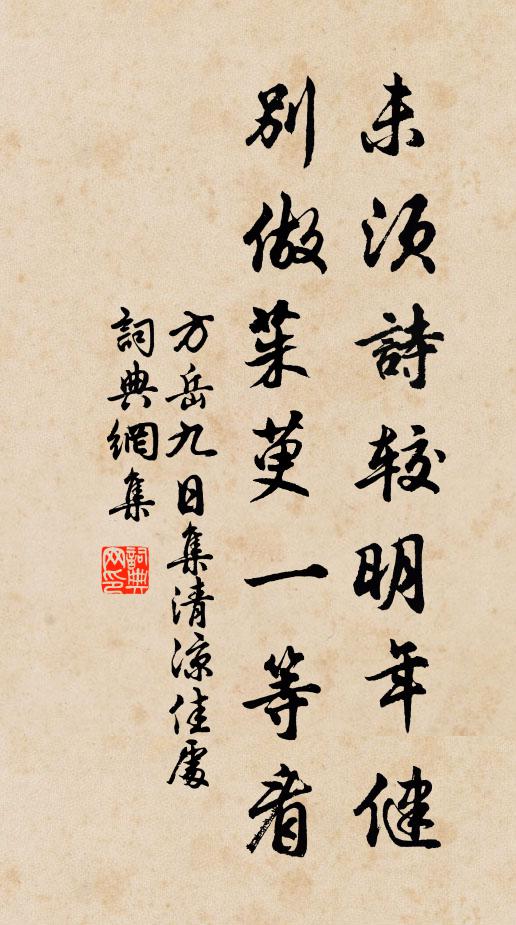 未須詩較明年健
別做茱萸一等看
方岳九日集清涼佳處
詞典網集
詞典
网印